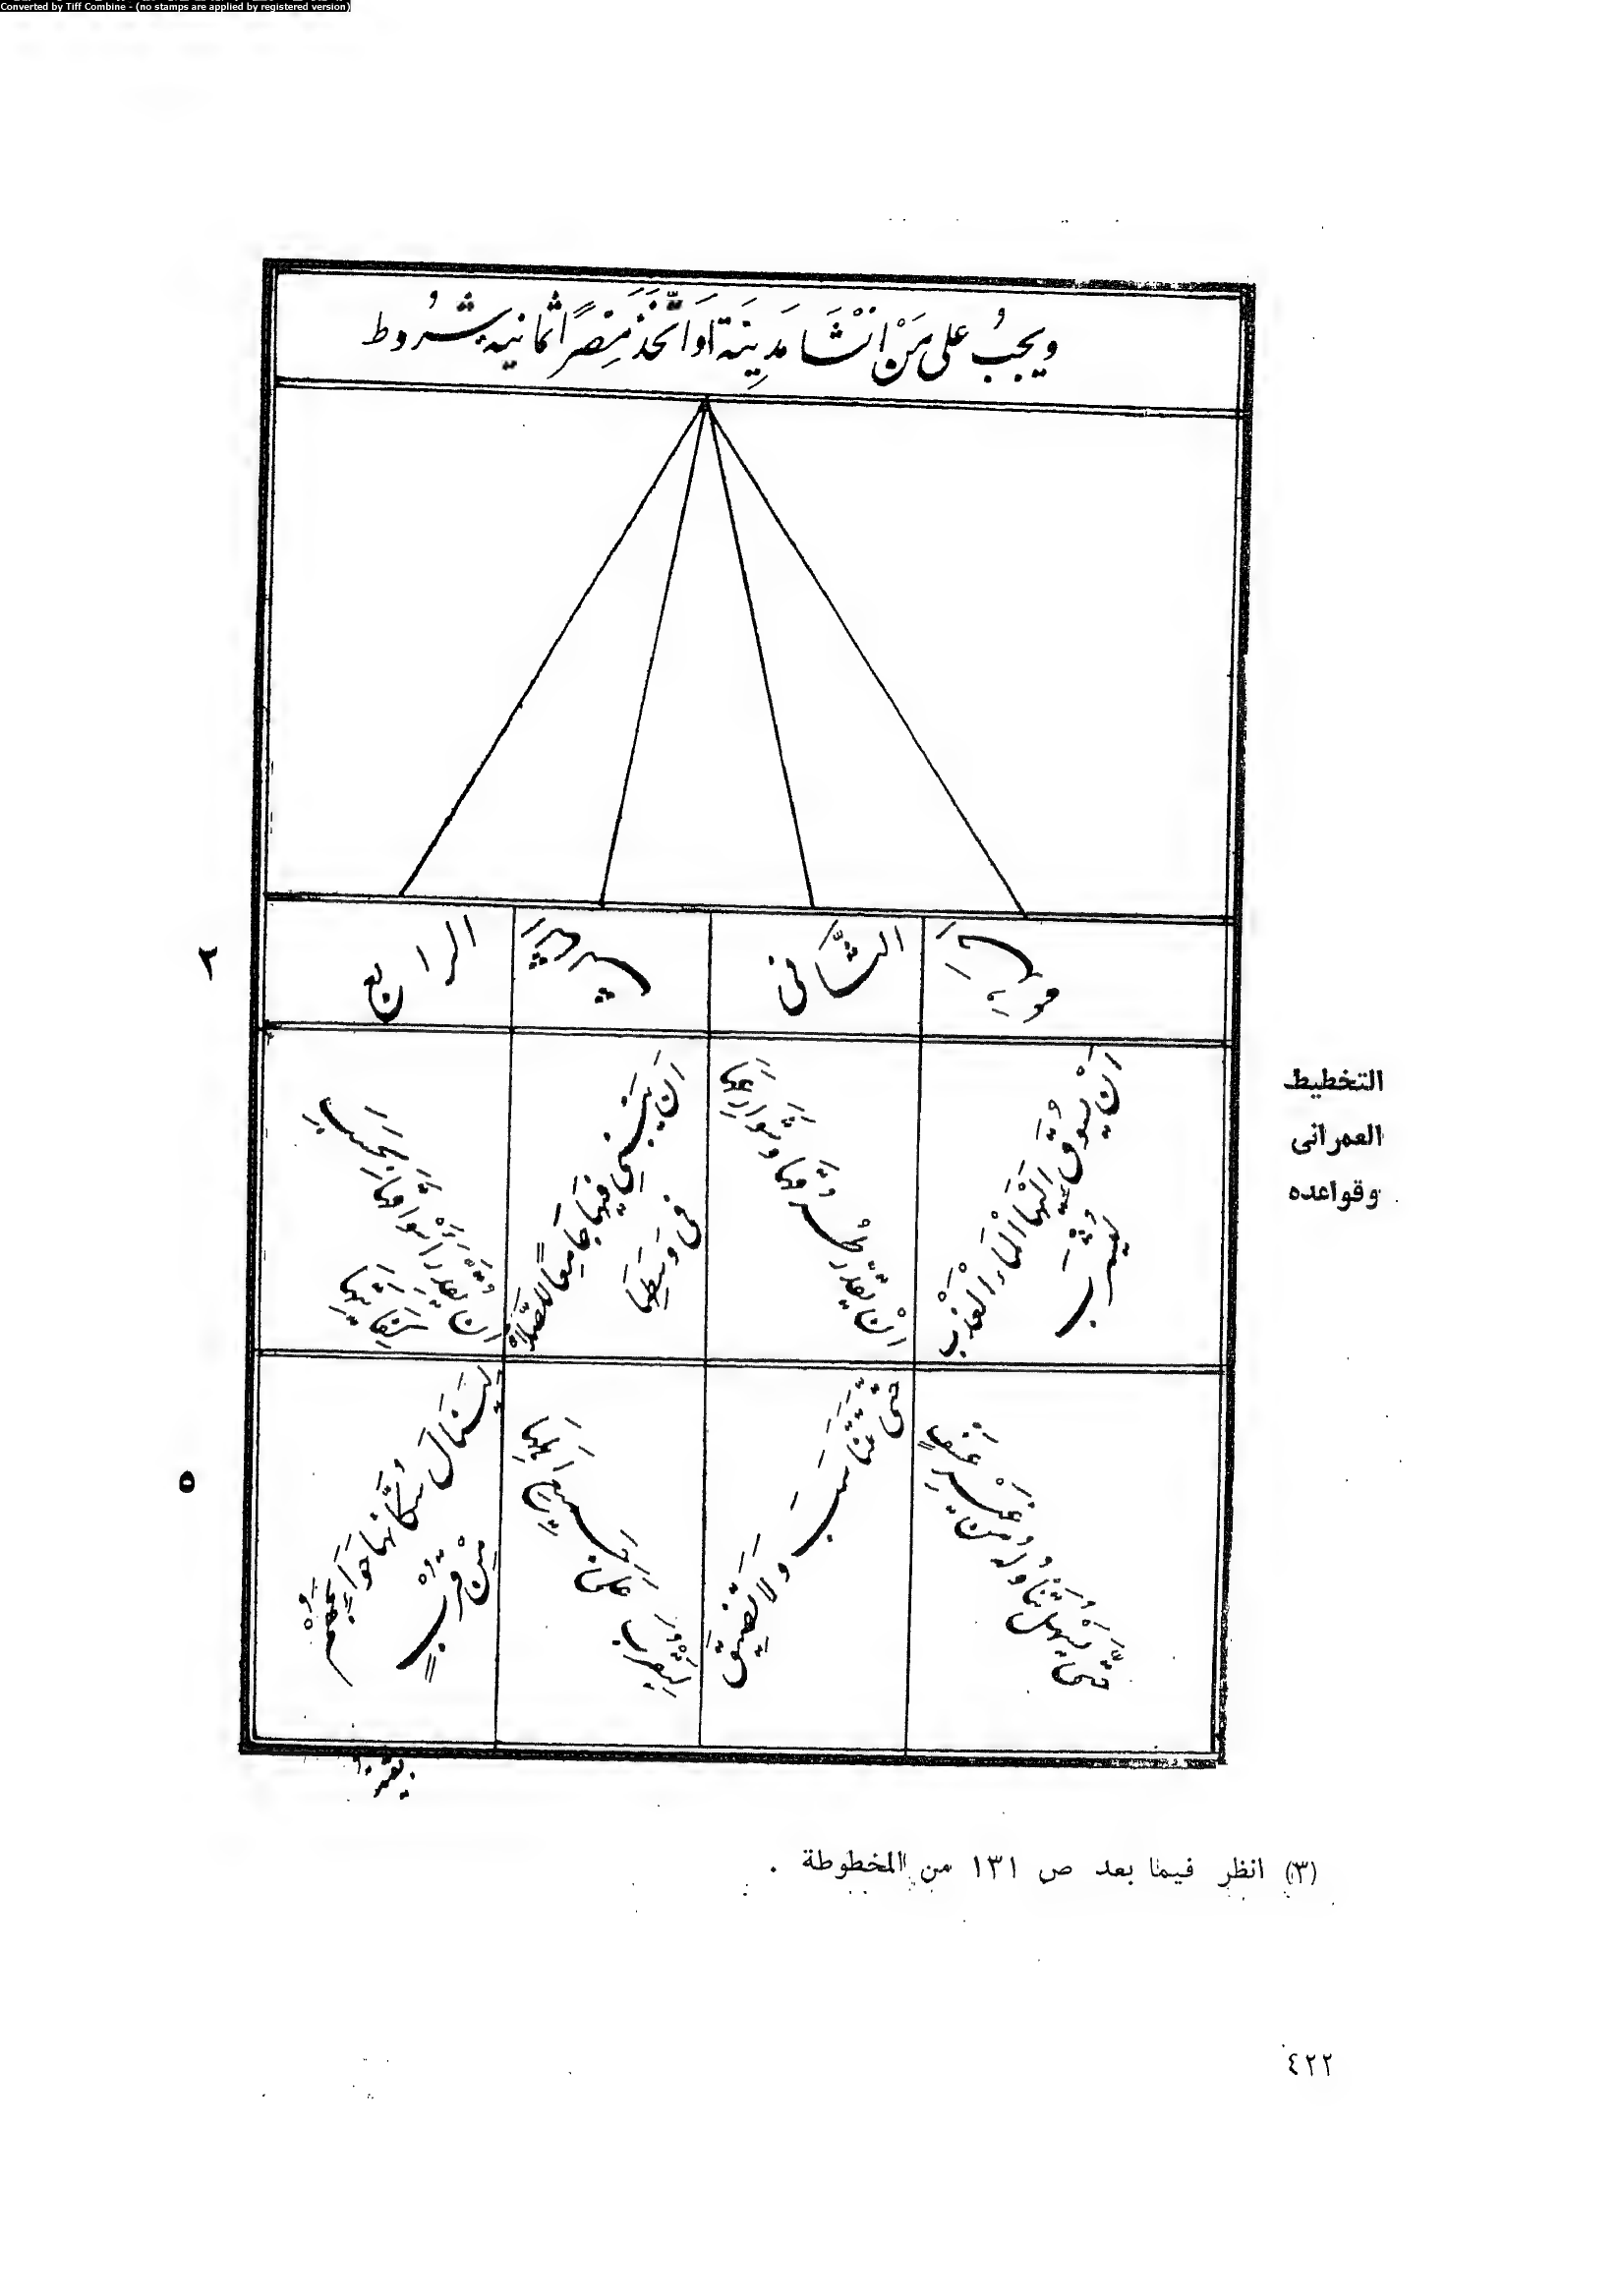 Converted by Tiff Combine - (no stamps are applied by registered version)
ويجبُ على مَنْ انْشَا مَدِينَة اوَاتَّخَذَ مِصْرًا ثمانية شروط
الثَّانى
الرابع
٢
اَنْ يَسُوقَ اِلَيْهَا الْمَاءَ الْعَذْبَ
لِيُشْرَبَ
اَنْ يُقَدِّرَ طُرُقَهَا وَشَوَارِعَهَا
اَنْ يَبْتَنِىَ فِيهَا جَامِعًا لِلصَّلَاةِ
فِى وَسَطِهَا
اَنْ يُقَدِّرَ اَسْوَاقَهَا بِحَسَبِ
كِفَايَتِهَا
التخطيط
العمرانى
وقواعده
حَتَّى يَسْهُلَ تَنَاوُلُهُ مِنْ غَيْرِ عَسْفٍ
حَتَّى تَتَنَاسَبَ ولا تَضِيقَ
لِيَقْرُبَ عَلَى جَمِيعِ اَهْلِهَا
لِيَنَالَ سُكَّانُهَا حَوَائِجَهُمْ
مِنْ قُرْبٍ
٥
(٣) انظر فيما بعد ص ١٣١ من المخطوطة .
٤٢٢